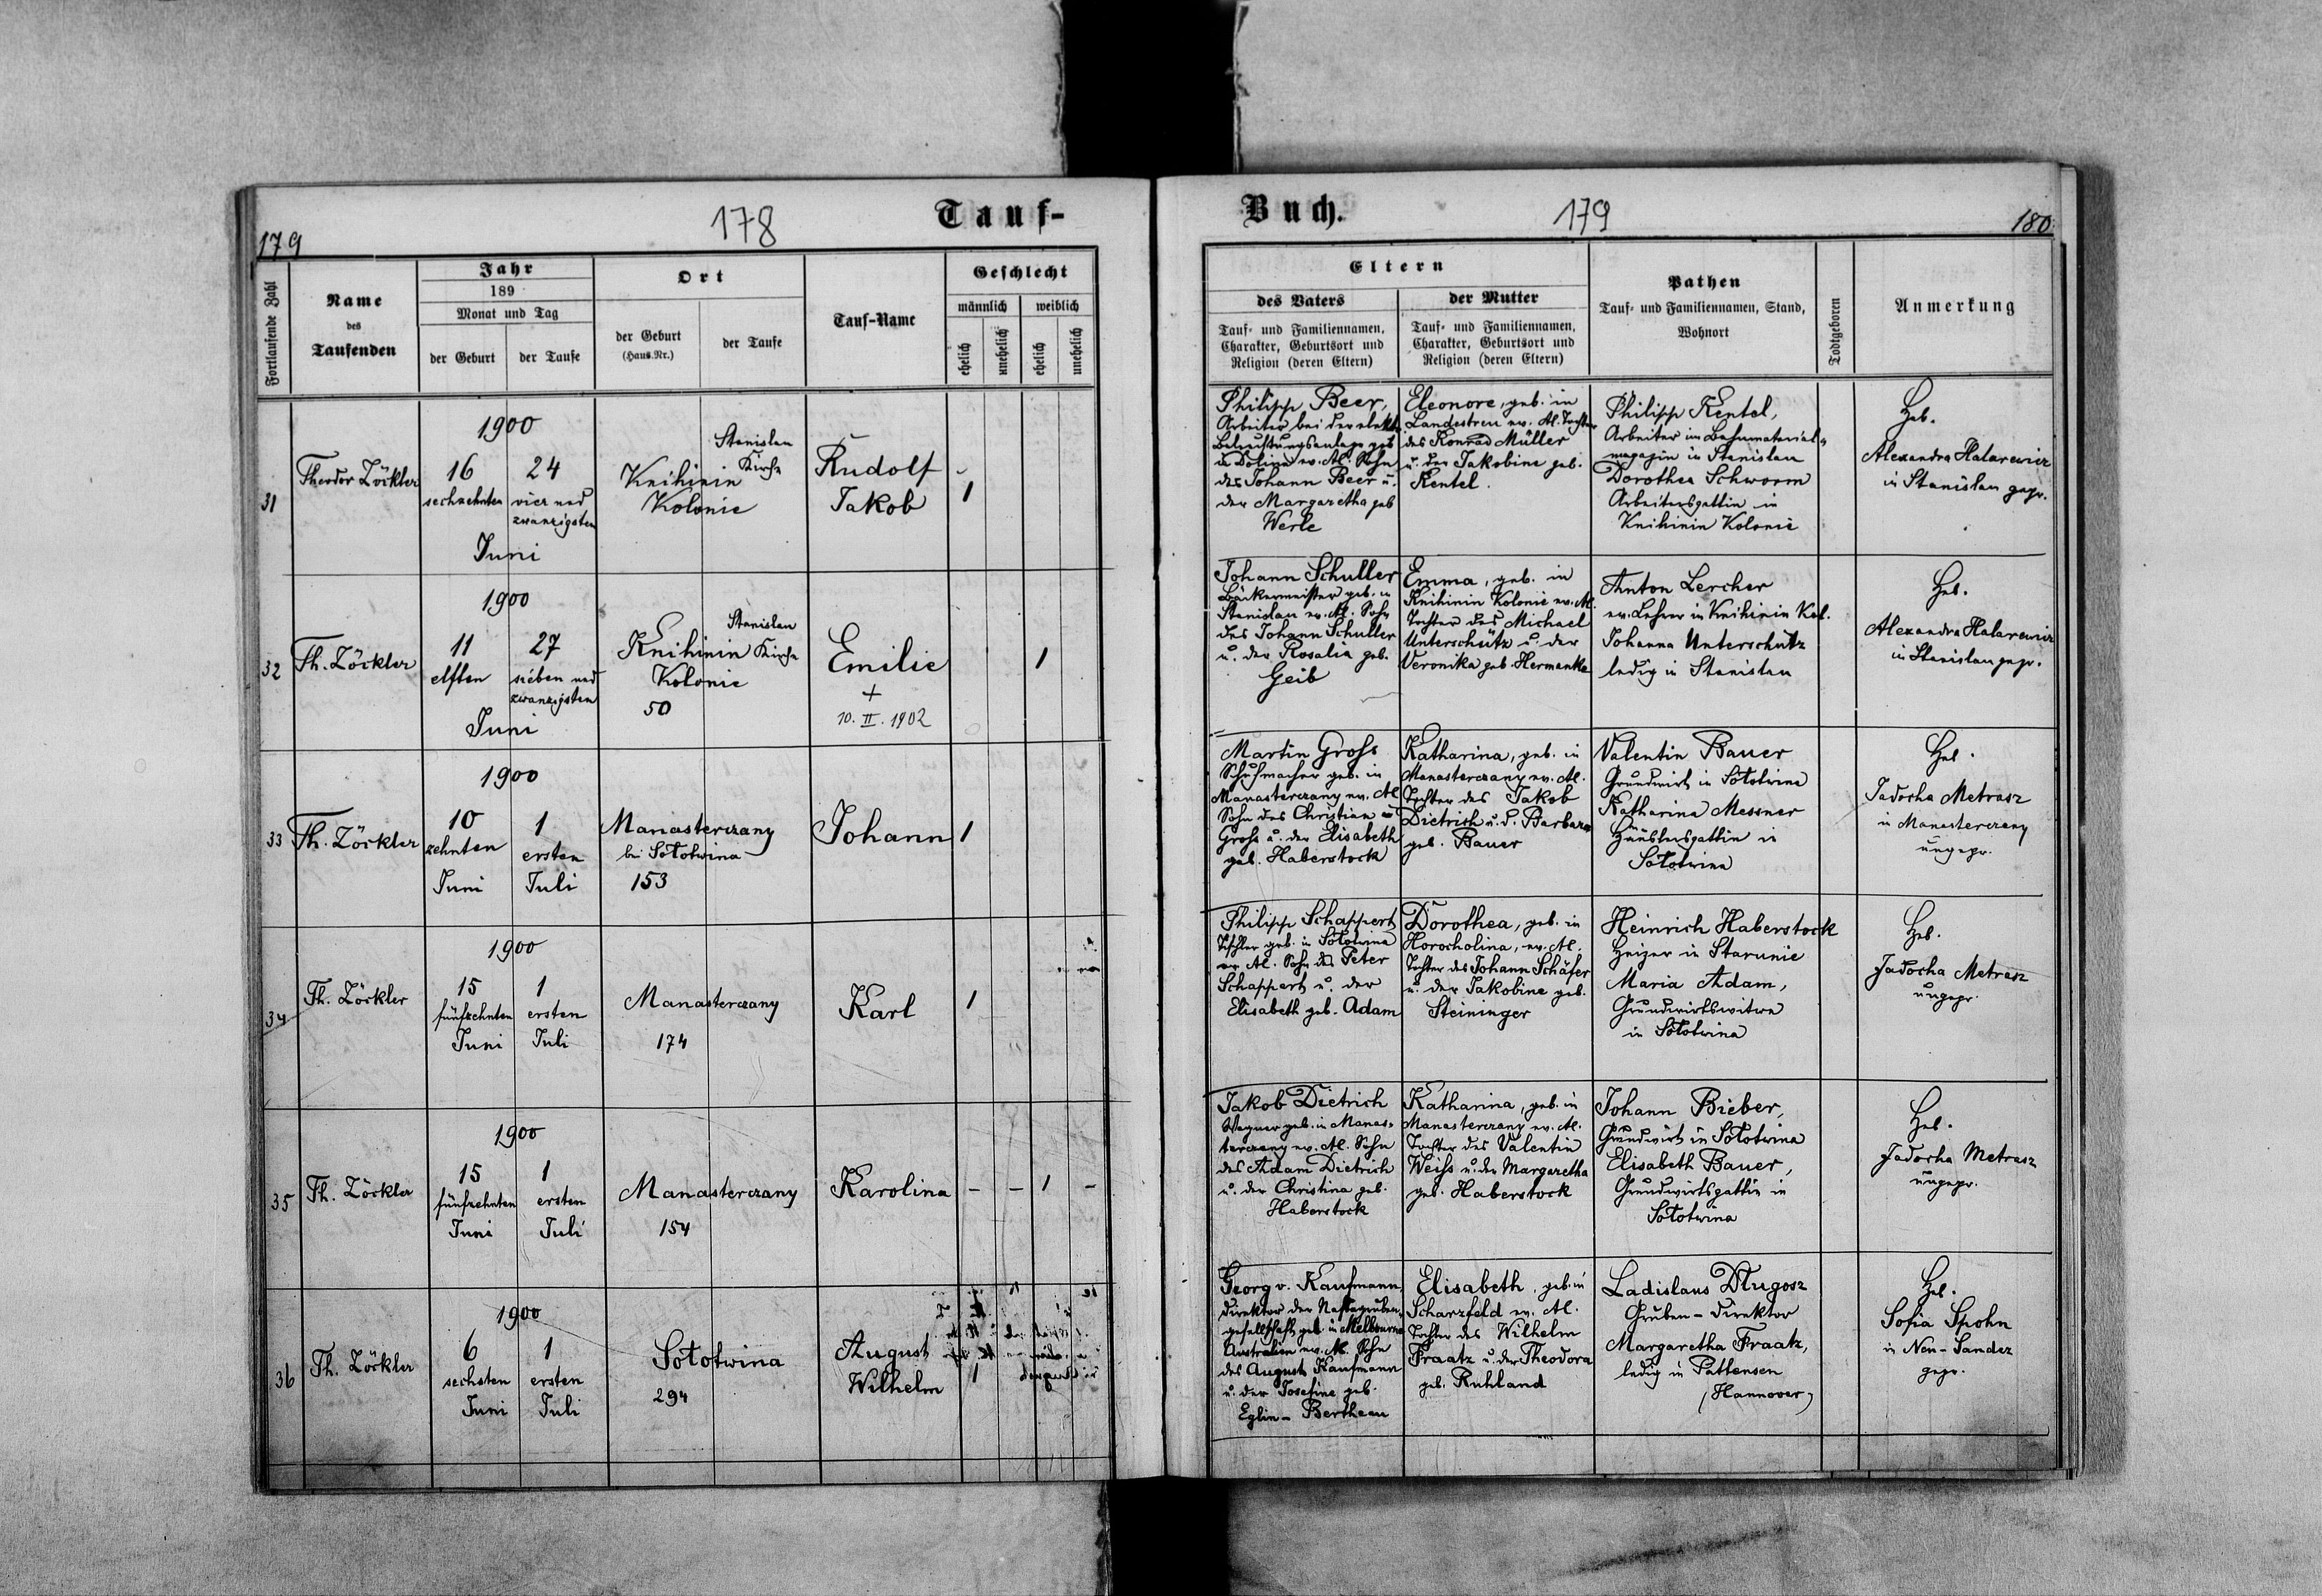 179
178
Tauf-
Fortlaufende Zahl
Name
des
Taufenden
Jahr
189
Monat und Tag
der Geburt
der Taufe
Ort
der Geburt
(Haus-Nr.)
der Taufe
Tauf-Name
Geschlecht
männlich
weiblich
ehelich
unehelich
ehelich
unehelich
31
Theodor Zöckler
1900
16
sechzehnten
24
vier und
zwanzigsten
Juni
Knihinin
Kolonie
Stanislau
Kirche
Rudolf
Jakob
1
32
Th. Zöckler
1900
11
elften
27
sieben und
zwanzigsten
Juni
Knihinin
Kolonie
50
Stanislau
Kirche
Emilie
+
10. II. 1902
1
33
Th. Zöckler
1900
10
zehnten
Juni
1
ersten
Juli
Manasterczany
bei Sołotwina
153
Johann
1
34
Th. Zöckler
1900
15
fünfzehnten
Juni
1
ersten
Juli
Manasterczany
174
Karl
1
35
Th. Zöckler
1900
15
fünfzehnten
Juni
1
ersten
Juli
Manasterczany
154
Karolina
- - 1 -
36
Th. Zöckler
1900
6
sechsten
Juni
1
ersten
Juli
Sołotwina
294
August
Wilhelm
1
Buch.
179
180
Eltern
des Vaters
Tauf- und Familiennamen,
Charakter, Geburtsort und
Religion (deren Eltern)
der Mutter
Tauf- und Familiennamen,
Charakter, Geburtsort und
Religion (deren Eltern)
Pathen
Tauf- und Familiennamen, Stand,
Wohnort
Todtgeboren
Anmerkung
Philipp Beer,
Arbeiter bei der elektr.
Beleuchtungsanlage geb.
in Dolina ev. Al. Sohn
des Johann Beer u.
der Margaretha geb
Werle
Eleonore, geb. in
Landestreu ev. Al. Tochter
des Konrad Müller
u. der Jakobine geb.
Rentel.
Philipp Rentel,
Arbeiter im Bahnmaterial-
magazin in Stanislau
Dorothea Schworm
Arbeitersgattin in
Knihinin Kolonie
Heb.
Alexandra Halarewicz
in Stanislau gepr.
Johann Schuller
Bäckermeister geb. in
Stanislau ev. Al. Sohn
des Johann Schuller
u. der Rosalia geb.
Geib
Emma, geb. in
Knihinin Kolonie ev. Al.
Tochter des Michael
Unterschütz u. der
Veronika geb. Hermanka
Anton Lercher
ev. Lehrer in Knihinin Kol.
Johanna Unterschütz
ledig in Stanislau
Heb.
Alexandra Halarewicz
in Stanislau gepr.
Martin Groß
Schuhmacher geb. in
Manasterczany ev. Al
Sohn des Christian
Groß u. der Elisabeth
geb. Haberstock
Katharina, geb. in
Manasterczany ev. Al.
Tochter des Jakob
Dietrich u. d. Barbara
geb. Bauer
Valentin Bauer
Grundwirt in Sołotwina
Katharina Messner
Häuslersgattin in
Sołotwina
Heb.
Jadocha Metrasz
in Manasterczany
ungepr.
Philipp Schappert
Tischler geb. in Sołotwina
ev. Al. Sohn des Peter
Schappert u. der
Elisabeth geb. Adam
Dorothea, geb. in
Horocholina, ev. Al.
Tochter des Johann Schäfer
u. der Jakobine geb.
Steininger
Heinrich Haberstock
Heizer in Starunie
Maria Adam,
Grundwirtswitwe
in Sołotwina
Heb.
Jadocha Metrasz
ungepr.
Jakob Dietrich
Wagner geb. in Manas-
terczany ev. Al. Sohn
des Adam Dietrich
u. der Christina geb.
Haberstock
Katharina, geb. in
Manasterczany ev. Al.
Tochter des Valentin
Weiß u. der Margaretha
geb. Haberstock
Johann Bieber,
Grundwirt in Sołotwina
Elisabeth Bauer,
Grundwirtsgattin in
Sołotwina
Heb.
Jadocha Metrasz
ungepr.
Georg v. Kaufmann,
Direktor der Naftagruben-
gesellschaft geb. in Melbourne
Australien ev. Al. Sohn
des August Kaufmann
u. der Josefine geb.
Eglin- Bertheau
Elisabeth, geb. in
Scharzfeld ev. Al.
Tochter des Wilhelm
Fraatz u. der Theodora
geb. Ruhland
Ladislaus Długosz
Gruben-Direktor
Margaretha Fraatz,
ledig in Pattensen
(Hannover)
Heb.
Sofia Spohn
in Neu-Sandez
gepr.